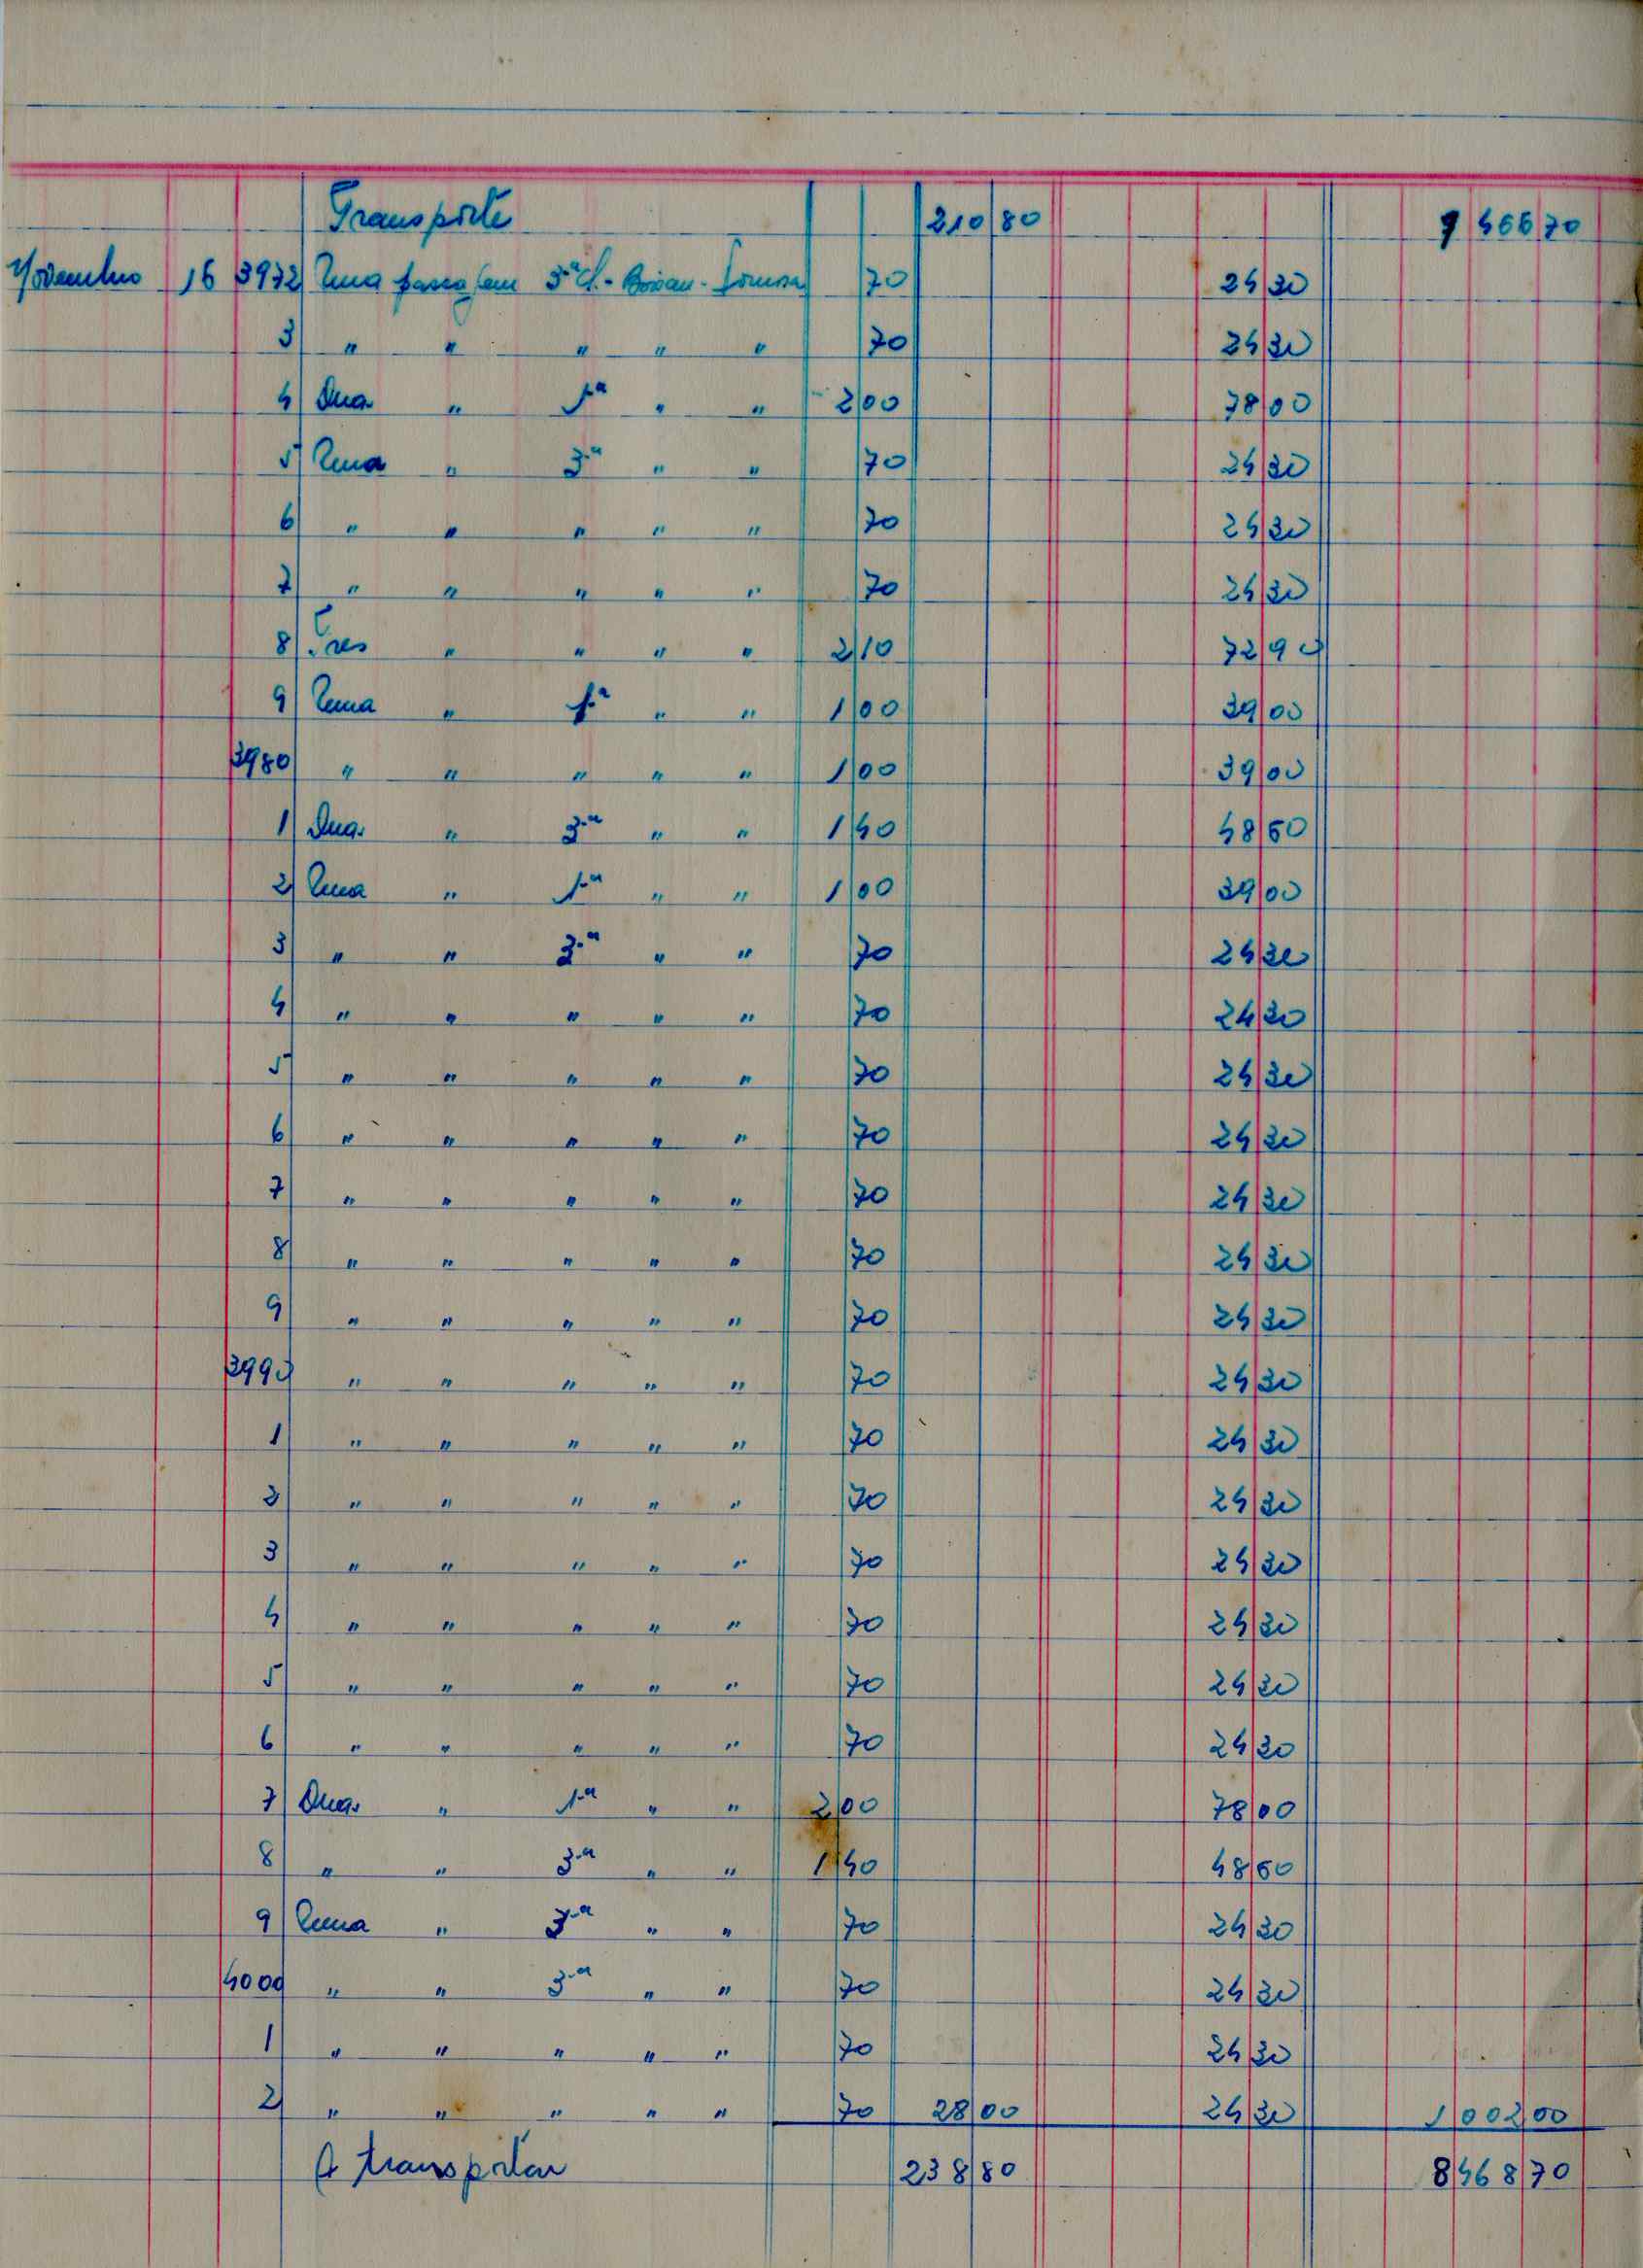 Transporte 210 80 7 466 70
Novembro 16 3972 Uma passagem 3.ª cl. - Bissau - Formosa 70 24 30
3 " " " " " 70 24 30
4 Duas " 1.ª " " 2 00 78 00
5 Uma " 3.ª " " 70 24 30
6 " " " " " 70 24 30
7 " " " " " 70 24 30
8 Tres " " " " 2 10 72 90
9 Uma " 1.ª " " 1 00 39 00
3980 " " " " " 1 00 39 00
1 Duas " 3.ª " " 1 40 48 60
2 Uma " 1.ª " " 1 00 39 00
3 " " 3.ª " " 70 24 30
4 " " " " " 70 24 30
5 " " " " " 70 24 30
6 " " " " " 70 24 30
7 " " " " " 70 24 30
8 " " " " " 70 24 30
9 " " " " " 70 24 30
3990 " " " " " 70 24 30
1 " " " " " 70 24 30
2 " " " " " 70 24 30
3 " " " " " 70 24 30
4 " " " " " 70 24 30
5 " " " " " 70 24 30
6 " " " " " 70 24 30
7 Duas " 1.ª " " 2 00 78 00
8 " " 3.ª " " 1 40 48 60
9 Uma " 3.ª " " 70 24 30
4000 " " 3.ª " " 70 24 30
1 " " " " " 70 24 30
2 " " " " " 70 28 00 24 30 1 002 00
A transportar 238 80 8 468 70